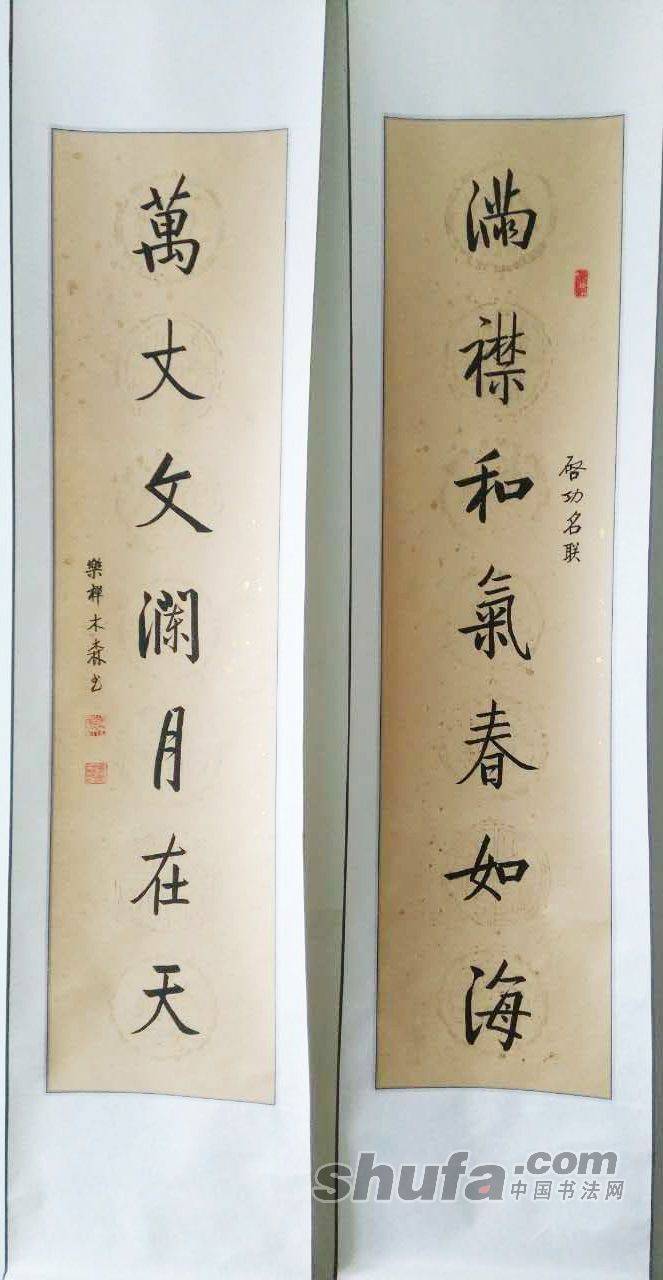 滿襟和氣春如海
啓功名联
萬丈文瀾月在天
樂樨木森书
shufa.com
中国书法网